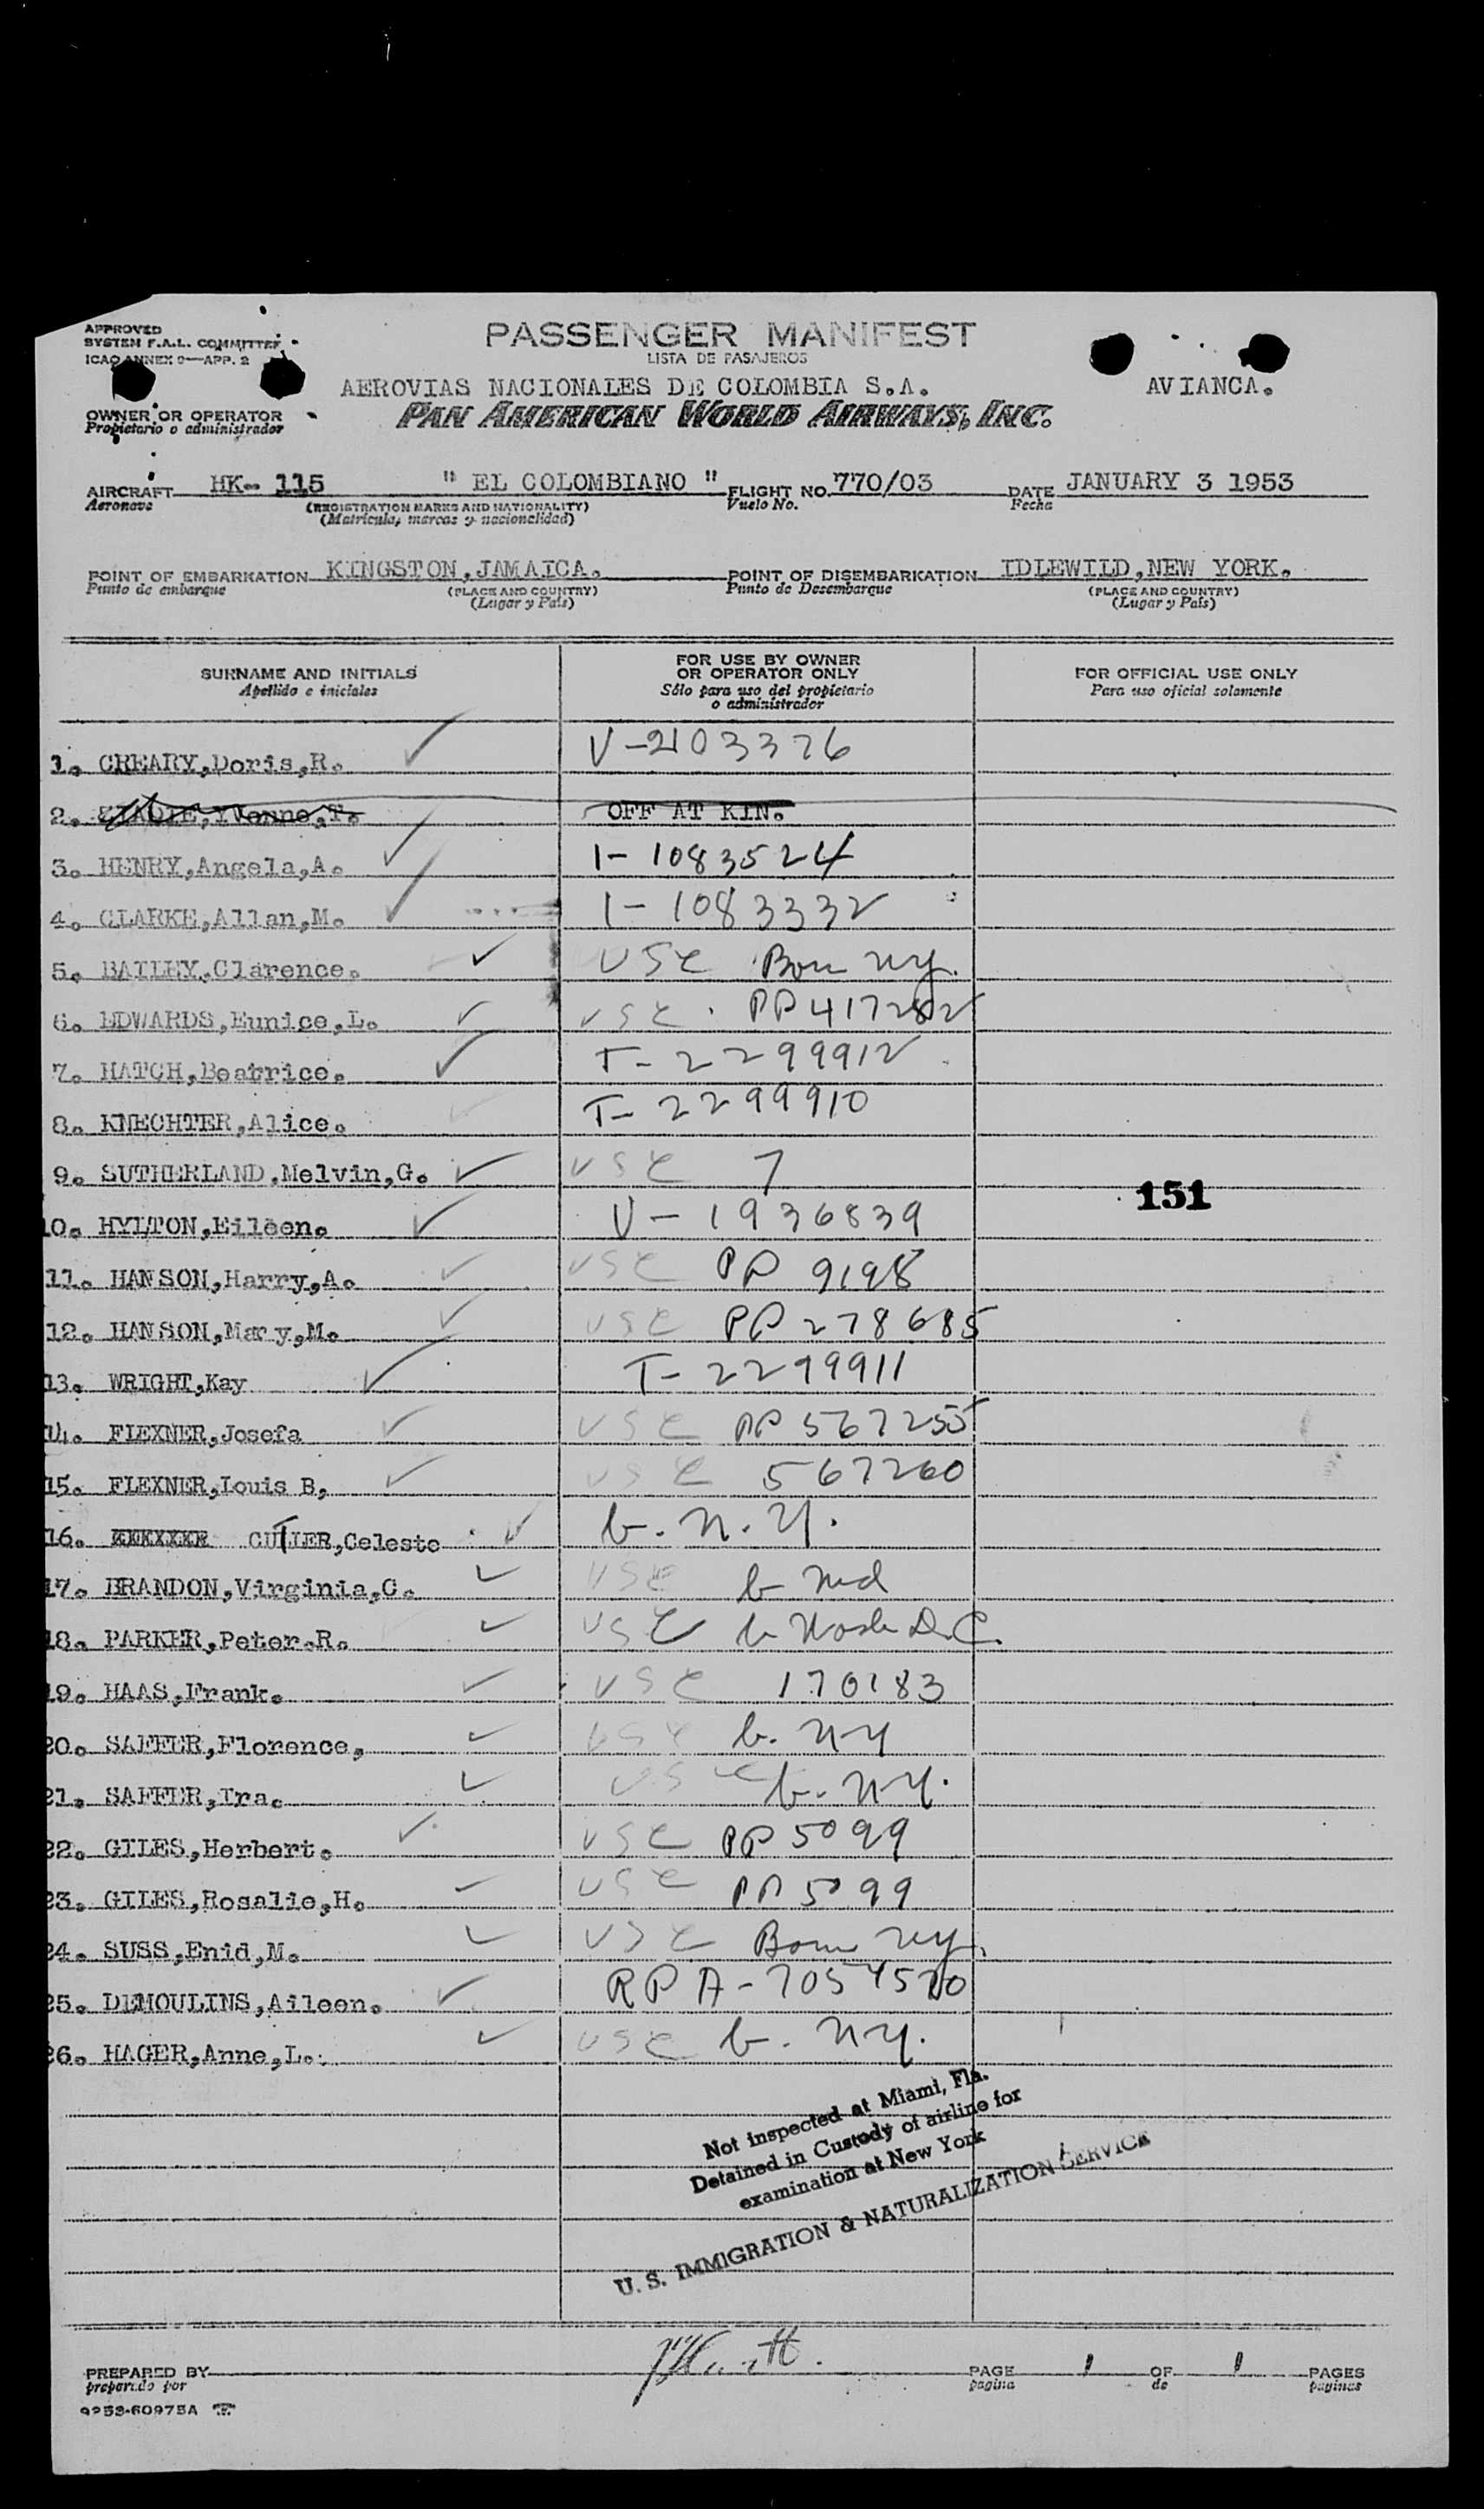 APPROVED
SYSTEM F.A.L. COMMITTEE
ICAO ANNEX 9—APP. 2
PASSENGER MANIFEST
LISTA DE PASAJEROS
AEROVIAS NACIONALES DE COLOMBIA S.A. AVIANCA.
PAN AMERICAN WORLD AIRWAYS, INC.
OWNER OR OPERATOR
Propietario o administrador
AIRCRAFT HK- 115 " EL COLOMBIANO " FLIGHT NO. 770/03 DATE JANUARY 3 1953
Aeronave (REGISTRATION MARKS AND NATIONALITY) Vuelo No. Fecha
(Matricula, marcas y nacionalidad)
POINT OF EMBARKATION KINGSTON,JAMAICA. POINT OF DISEMBARKATION IDLEWILD,NEW YORK.
Punto de embarque (PLACE AND COUNTRY) Punto de Desembarque (PLACE AND COUNTRY)
(Lugar y País) (Lugar y País)
SURNAME AND INITIALS FOR USE BY OWNER OR OPERATOR ONLY FOR OFFICIAL USE ONLY
Apellido e iniciales Sólo para uso del propietario o administrador Para uso oficial solamente
1. CREARY,Doris,R. V-2103376
2. Yvonne,T. OFF AT KIN.
3. HENRY,Angela,A. 1-1083524
4. CLARKE,Allan,M. 1-1083332
5. BAILEY.Clarence. USC Born NY.
6. EDWARDS,Eunice,L. USC. PP417282
7. HATCH,Beatrice. T-2299912
8. KNECHTER,Alice. T-2299910
9. SUTHERLAND,Melvin,G. USC 7
10. HYLTON,Eileen. V-1936839
151
11. HANSON,Harry,A. USC PP 9198
12. HANSON,Mary,M. USC PP 278685
13. WRIGHT,Kay T-2299911
14. FLEXNER,Josefa USC PP 567255
15. FLEXNER,Louis B, USC 567260
16. CUTLER,Celeste b. N.Y.
17. BRANDON,Virginia,C. USC b Md
18. PARKER,Peter.R. USC b Wash D.C.
19. HAAS,Frank. USC 170183
20. SAFFER,Florence, USC b. NY
21. SAFFER,Ira. USC b. N.Y.
22. GILES,Herbert. USC PP 5099
23. GILES,Rosalie,H. USC PP 5099
24. SUSS,Enid,M. USC Born NY.
25. DEMOULINS,Aileen. RP A-7054520
26. HAGER,Anne,L. USC b. NY.
Not inspected at Miami, Fla.
Detained in Custody of airline for
examination at New York
U. S. IMMIGRATION & NATURALIZATION SERVICE
PREPARED BY PAGE 1 OF 1 PAGES
preparado por pagina de paginas
9253-60975A